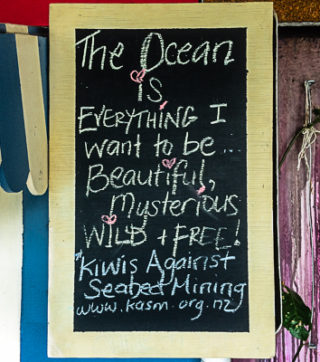 The Ocean
is
EVERYTHING I
want to be...
Beautiful,
Mysterious
WILD + FREE!
Kiwis Against
Seabed Mining
www.kasm.org.nz